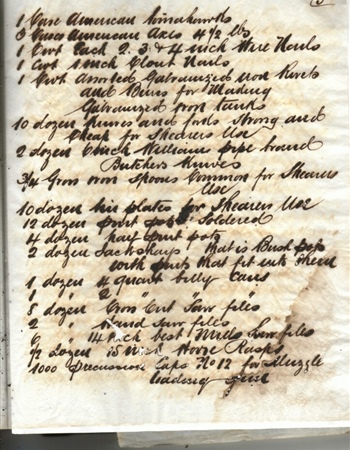 1 Case American
3 Cases American Axes 4 1/2 lbs
1 Cwt Each 2. 3 & 4 inch Wire Nails
1 Cwt 1 inch Clout Nails
1 Cwt Assorted Galvanized iron Rivets
and for Making
Galvanized iron tanks
10 dozen Knives and forks Strong and
Cheap for Shearers Use
2 dozen 6 inch William pipe brand
Butchers Knives
3/4 Gross iron Spoons Common for Shearers
Use
10 dozen tin plates for Shearers Use
12 dozen pint pots Soldered
4 dozen half pint pots
2 dozen Jackshays that is Bush pots
with pints that fit into them
1 dozen 4 quart billy Cans
1 " 2 "
5 dozen Cross Cut Saw files
2 " Saw files
6 " 14 inch best Mill Saw files
1/2 dozen 15 inch Horse Rasps
1000 percussion Caps No 12 for Muzzle
loading gun